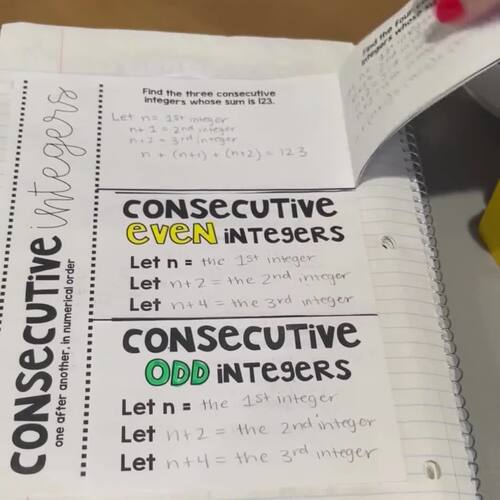 CONSECUTIVE integers
one after another, in numerical order
Find the three consecutive
integers whose sum is 123.
Let n = 1st integer
n+1 = 2nd integer
n+2 = 3rd integer
n + (n+1) + (n+2) = 123
CONSECUTIVE
EVEN INTEGERS
Let n = the 1st integer
Let n+2 = the 2nd integer
Let n+4 = the 3rd integer
CONSECUTIVE
ODD INTEGERS
Let n = the 1st integer
Let n+2 = the 2nd integer
Let n+4 = the 3rd integer
Find the four
integers whose